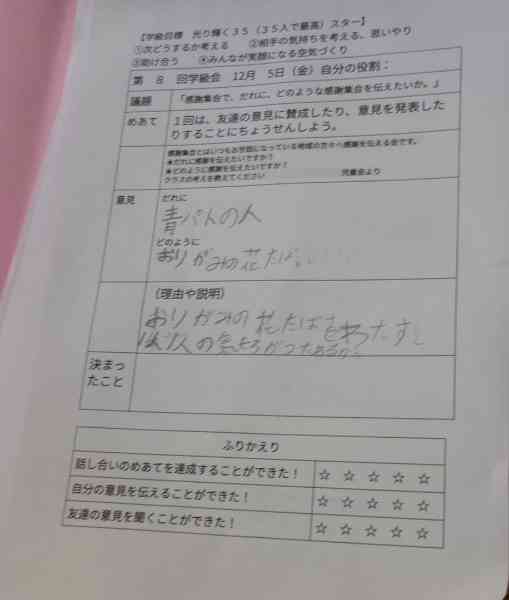 【学級目標　光り輝く３５（３５人で最高）スター】
①次どうするか考える　②相手の気持ちを考える、思いやり
③助け合う　④みんなが笑顔になる空気づくり
第　８　回学級会　12月　5日（金）自分の役割：
議題　「感謝集会で、だれに、どのような感謝集会を伝えたいか。」
めあて　１回は、友達の意見に賛成したり、意見を発表した
りすることにちょうせんしよう。
感謝集会とはいつもお世話になっている地域の方々へ感謝を伝える会です。
★だれに感謝を伝えたいですか？
★どのように感謝を伝えたいですか？
クラスの考えを教えてください　児童会より
意見　だれに
青パトの人
どのように
おりがみの花たば。
（理由や説明）
おりがみの花たばをわたすと
決まっ
たこと
ふりかえり
話し合いのめあてを達成することができた！　☆　☆　☆　☆　☆
自分の意見を伝えることができた！　☆　☆　☆　☆　☆
友達の意見を聞くことができた！　☆　☆　☆　☆　☆